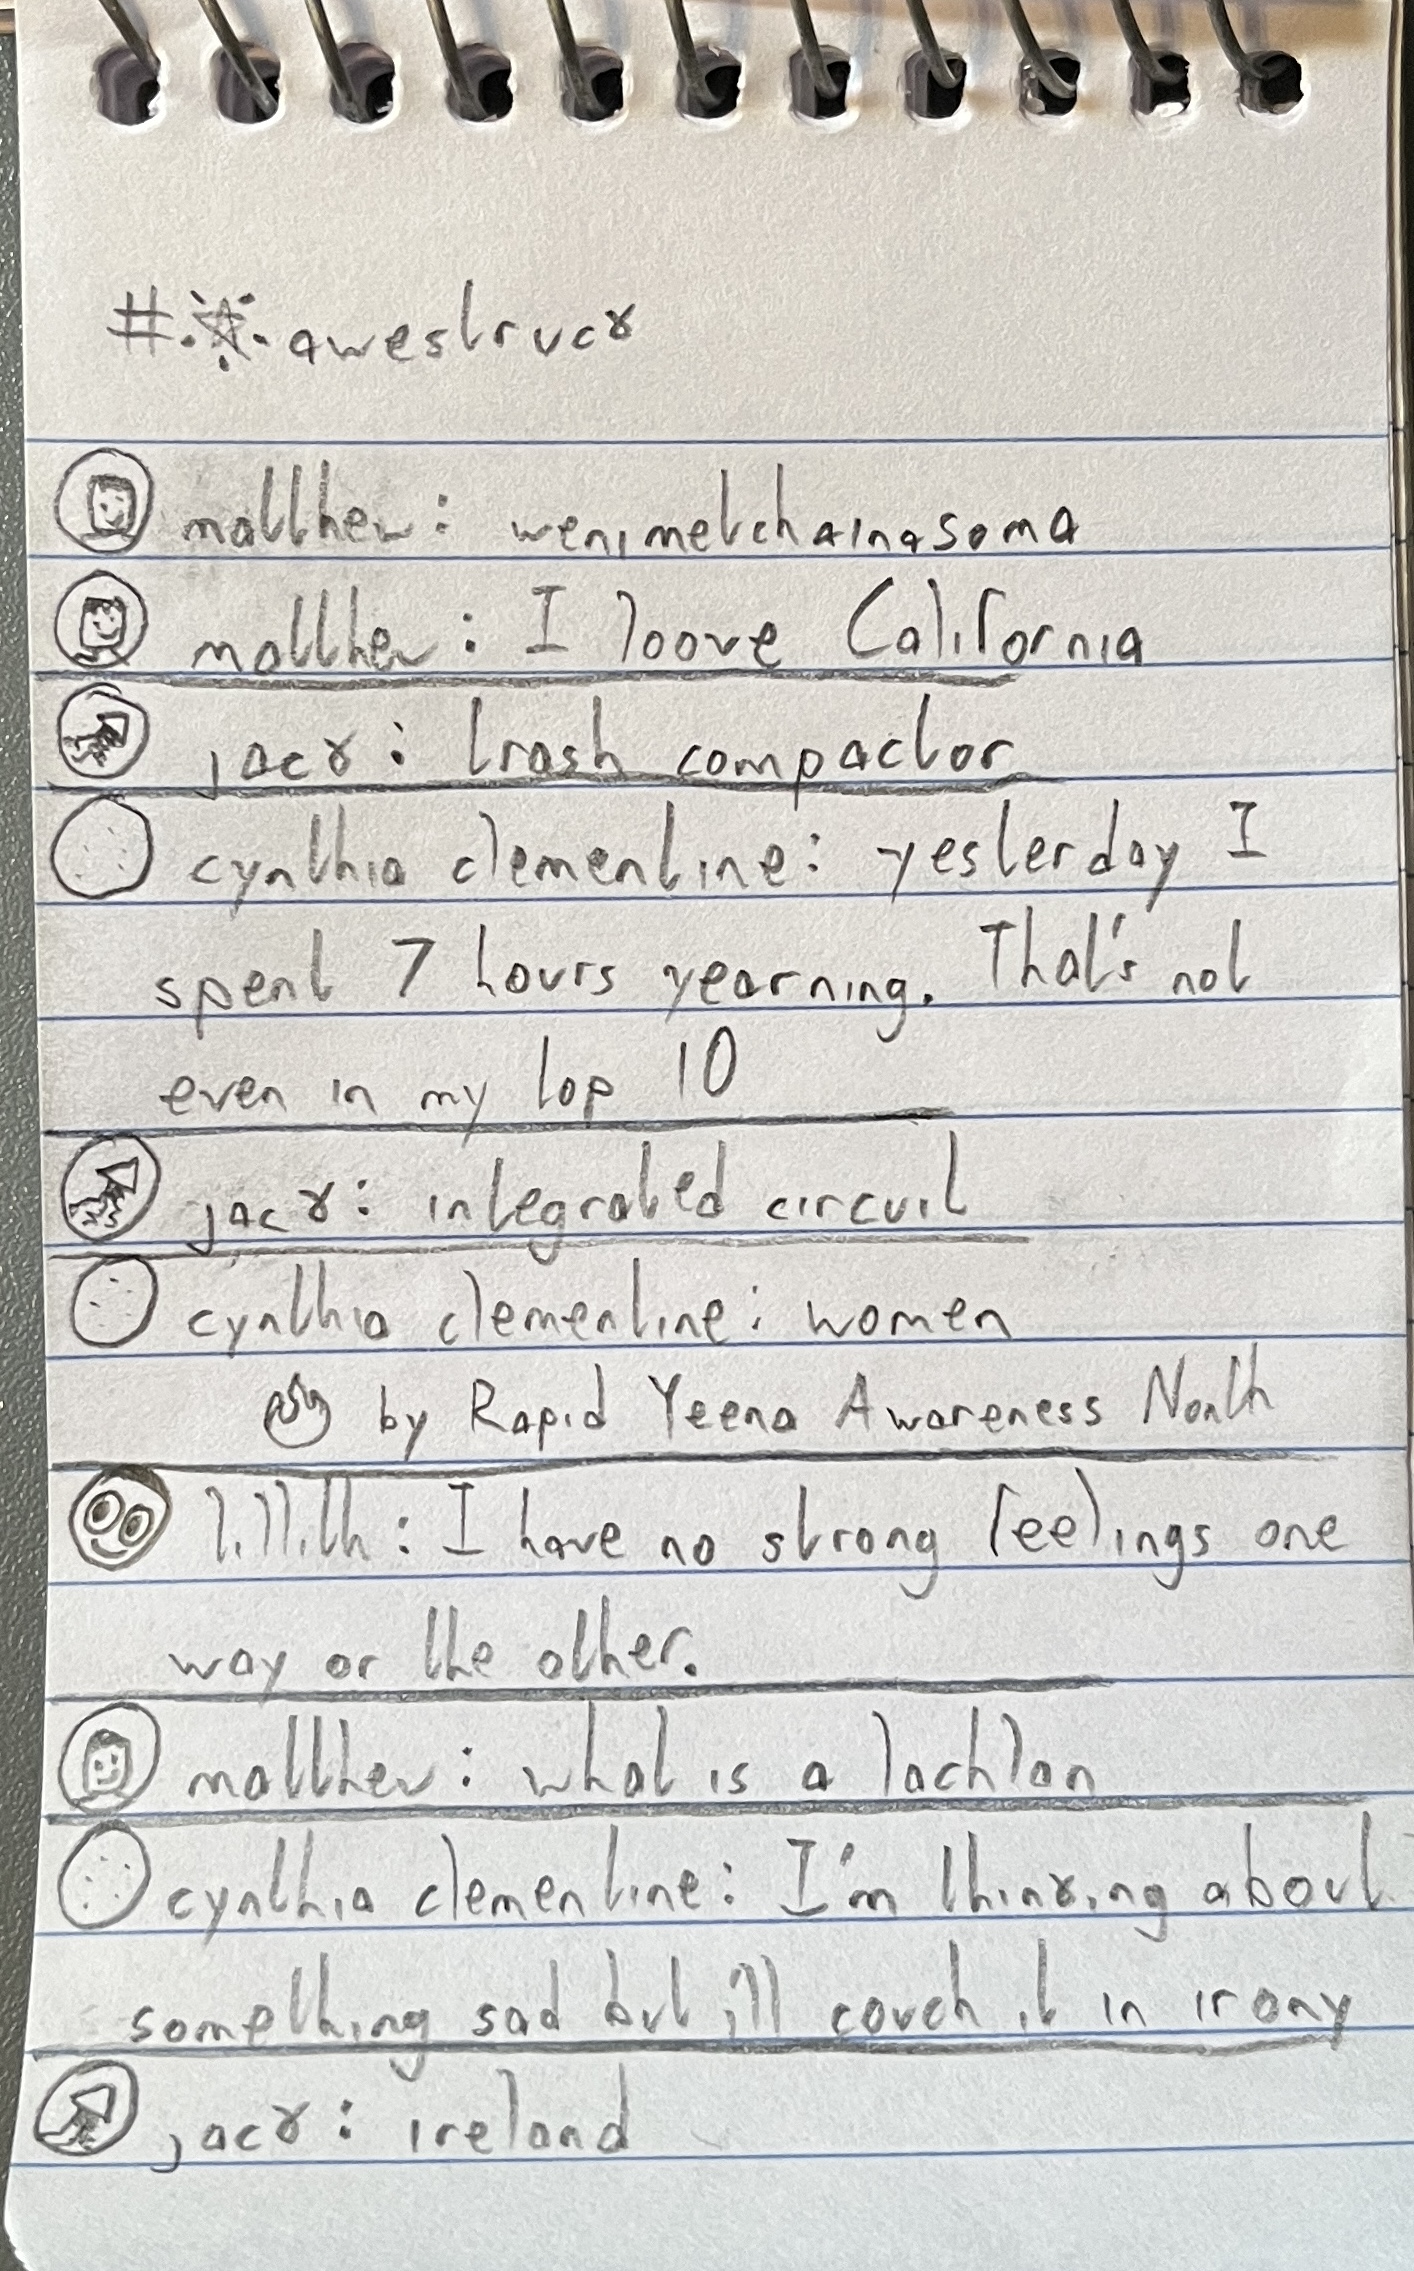 #·☆·awestruck
matthew: wenimetchainasoma
matthew: I loove California
jack: trash compactor
cynthia clementine: yesterday I
spent 7 hours yearning. That's not
even in my top 10
jack: integrated circuit
cynthia clementine: women
by Rapid Yeena Awareness Nonth
lillith: I have no strong feelings one
way or the other.
matthew: what is a lachlan
cynthia clementine: I'm thinking about
something sad but i'll couch it in irony
jack: ireland